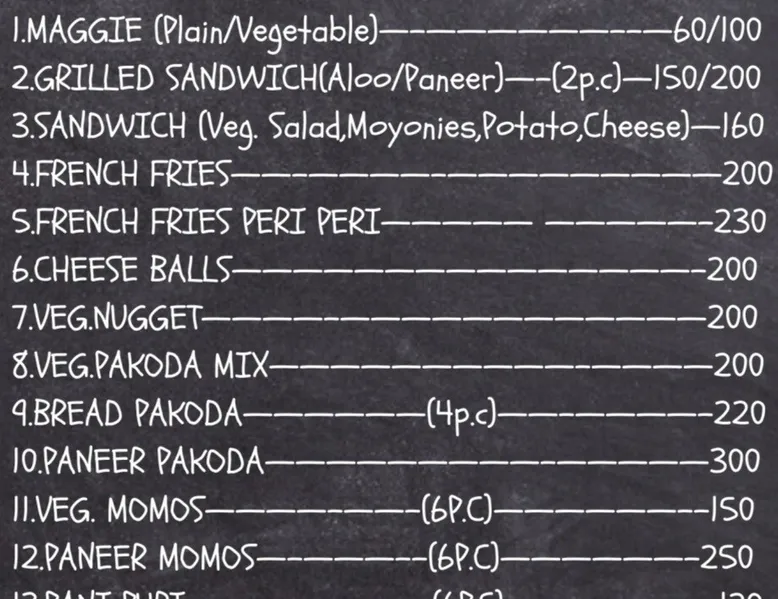 1.MAGGIE (Plain/Vegetable)————————————60/100
2.GRILLED SANDWICH(Aloo/Paneer)——-(2p.c)—150/200
3.SANDWICH (Veg. Salad,Moyonies,Potato,Cheese)—160
4.FRENCH FRIES————————————————————200
5.FRENCH FRIES PERI PERI—————— ———————230
6.CHEESE BALLS———————————————————200
7.VEG.NUGGET————————————————————200
8.VEG.PAKODA MIX——————————————————200
9.BREAD PAKODA———————(4p.c)—————————220
10.PANEER PAKODA——————————————————300
11.VEG. MOMOS—————————(6P.C)—————————150
12.PANEER MOMOS———————(6P.C)————————250
13.PANI PURI (6P.C) 120